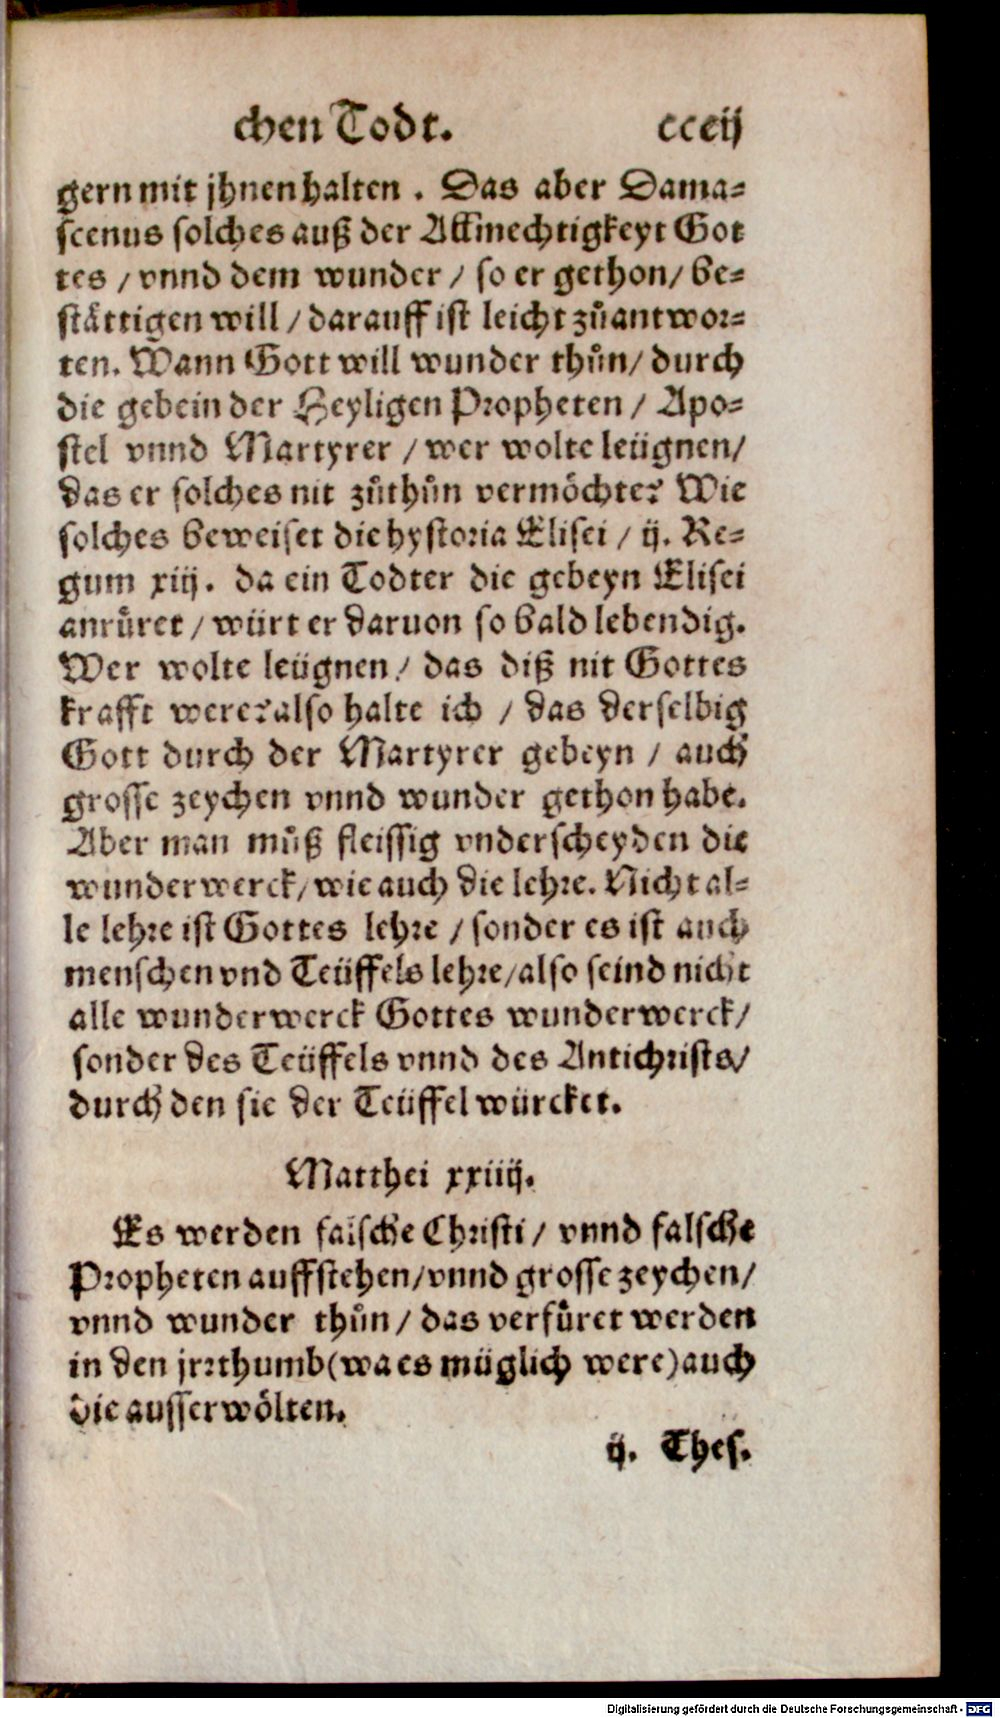 chen Todt. cceij
gern mit jhnen halten . Das aber Dama-
scenus solches auß der Allmechtigkeyt Got
tes / vnnd dem wunder / so er gethon / be-
stättigen will / darauff ist leicht zůantwor-
ten. Wann Gott will wunder thůn / durch
die gebein der Heyligen Propheten / Apo-
stel vnnd Martyrer / wer wolte leügnen /
das er solches nit zůthůn vermöchte? Wie
solches beweiset die hystoria Elisei / ij. Re-
gum xiij. da ein Todter die gebeyn Elisei
anrůret / würt er daruon so bald lebendig.
Wer wolte leügnen / das diß nit Gottes
krafft were? also halte ich / das derselbig
Gott durch der Martyrer gebeyn / auch
grosse zeychen vnnd wunder gethon habe.
Aber man můß fleissig vnderscheyden die
wunderwerck / wie auch die lehre. Nicht al-
le lehre ist Gottes lehre / sonder es ist auch
menschen vnd Teüffels lehre / also seind nicht
alle wunderwerck Gottes wunderwerck /
sonder des Teüffels vnnd des Antichrists /
durch den sie der Teüffel würcket.
Matthei xxiiij.
Es werden falsche Christi / vnnd falsche
Propheten auffstehen / vnnd grosse zeychen /
vnnd wunder thůn / das verfůret werden
in den jrrthumb (wa es müglich were) auch
die ausserwölten.
ij. Thes.
Digitalisierung gefördert durch die Deutsche Forschungsgemeinschaft - DFG